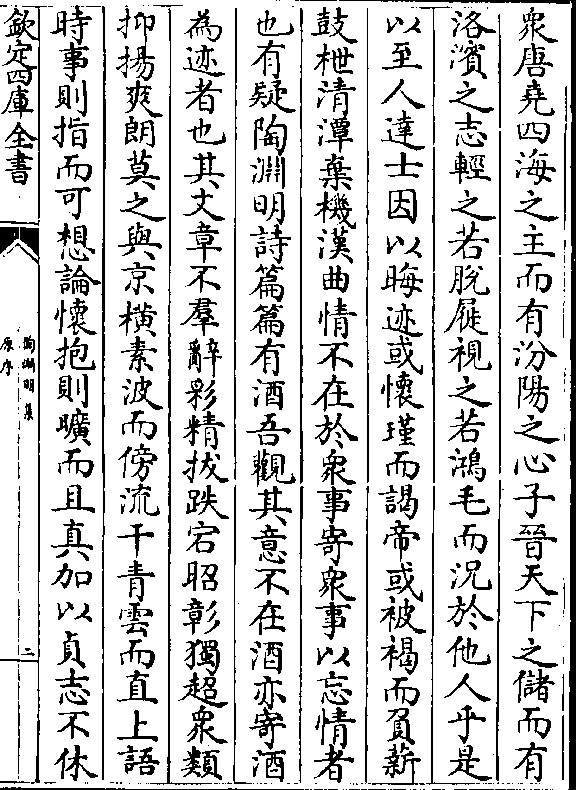 衆唐堯四海之主而有汾陽之心子晉天下之儲而有
洛濱之志輕之若脫屣視之若鴻毛而況於他人乎是
以至人達士因以晦迹或懷瑾而謁帝或被褐而負薪
鼓枻清潭棄機漢曲情不在於衆事寄衆事以忘情者
也有疑陶淵明詩篇篇有酒吾觀其意不在酒亦寄酒
為迹者也其文章不羣辭彩精拔跌宕昭彰獨超衆類
抑揚爽朗莫之與京橫素波而傍流干青雲而直上語
時事則指而可想論懷抱則曠而且真加以貞志不休
欽定四庫全書
陶淵明集
原序
二